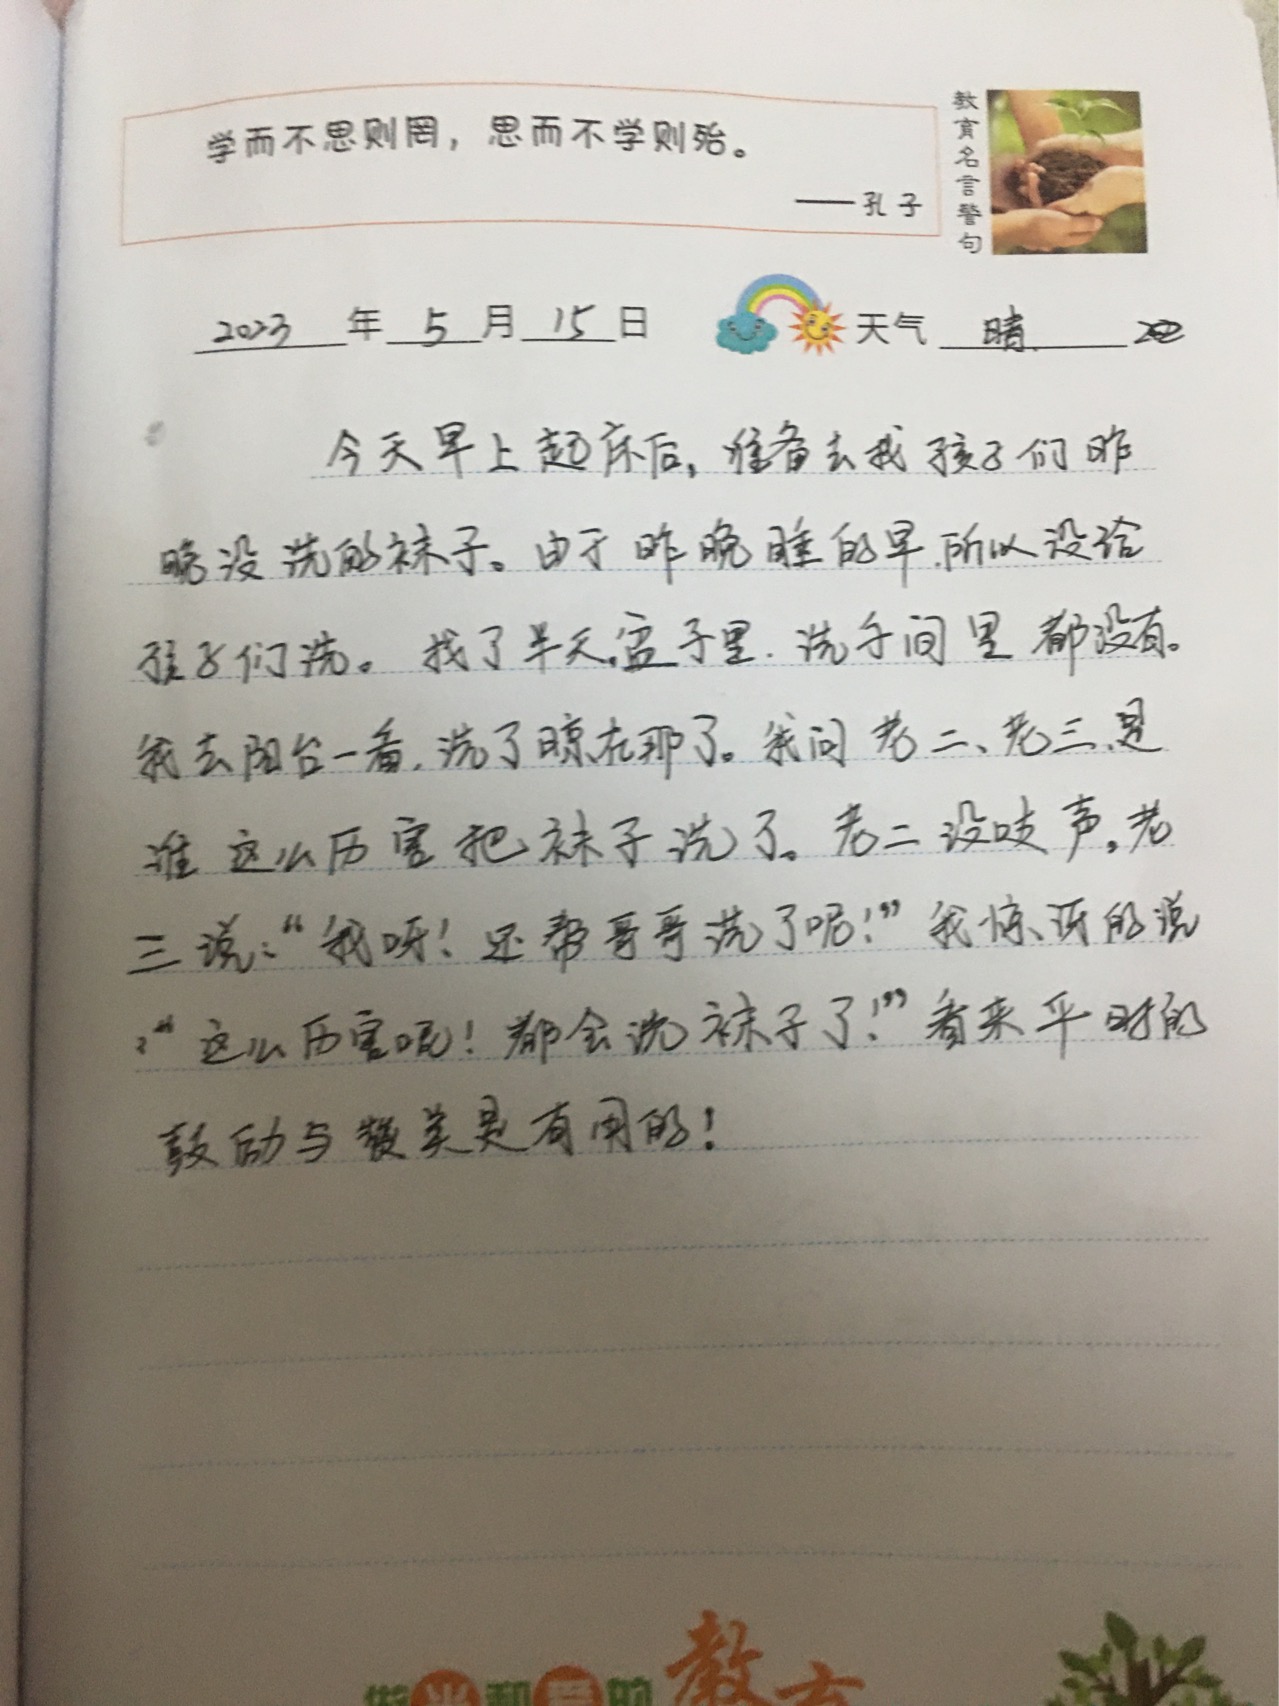 学而不思则罔，思而不学则殆。
——孔子
教育名言警句
2023年5月15日 天气 晴
今天早上起床后，准备去找孩子们昨
晚没洗的袜子。由于昨晚睡的早，所以没给
孩子们洗。找了半天，盆子里、洗手间里都没有。
我去阳台一看，洗了晾在那了。我问老二、老三，是
谁这么历害把袜子洗了。老二没吱声，老
三说：“我呀！还帮哥哥洗了呢！”我惊讶的说
：“这么历害呢！都会洗袜子了！”看来平时的
鼓励与赞美是有用的！
做光和爱的教育